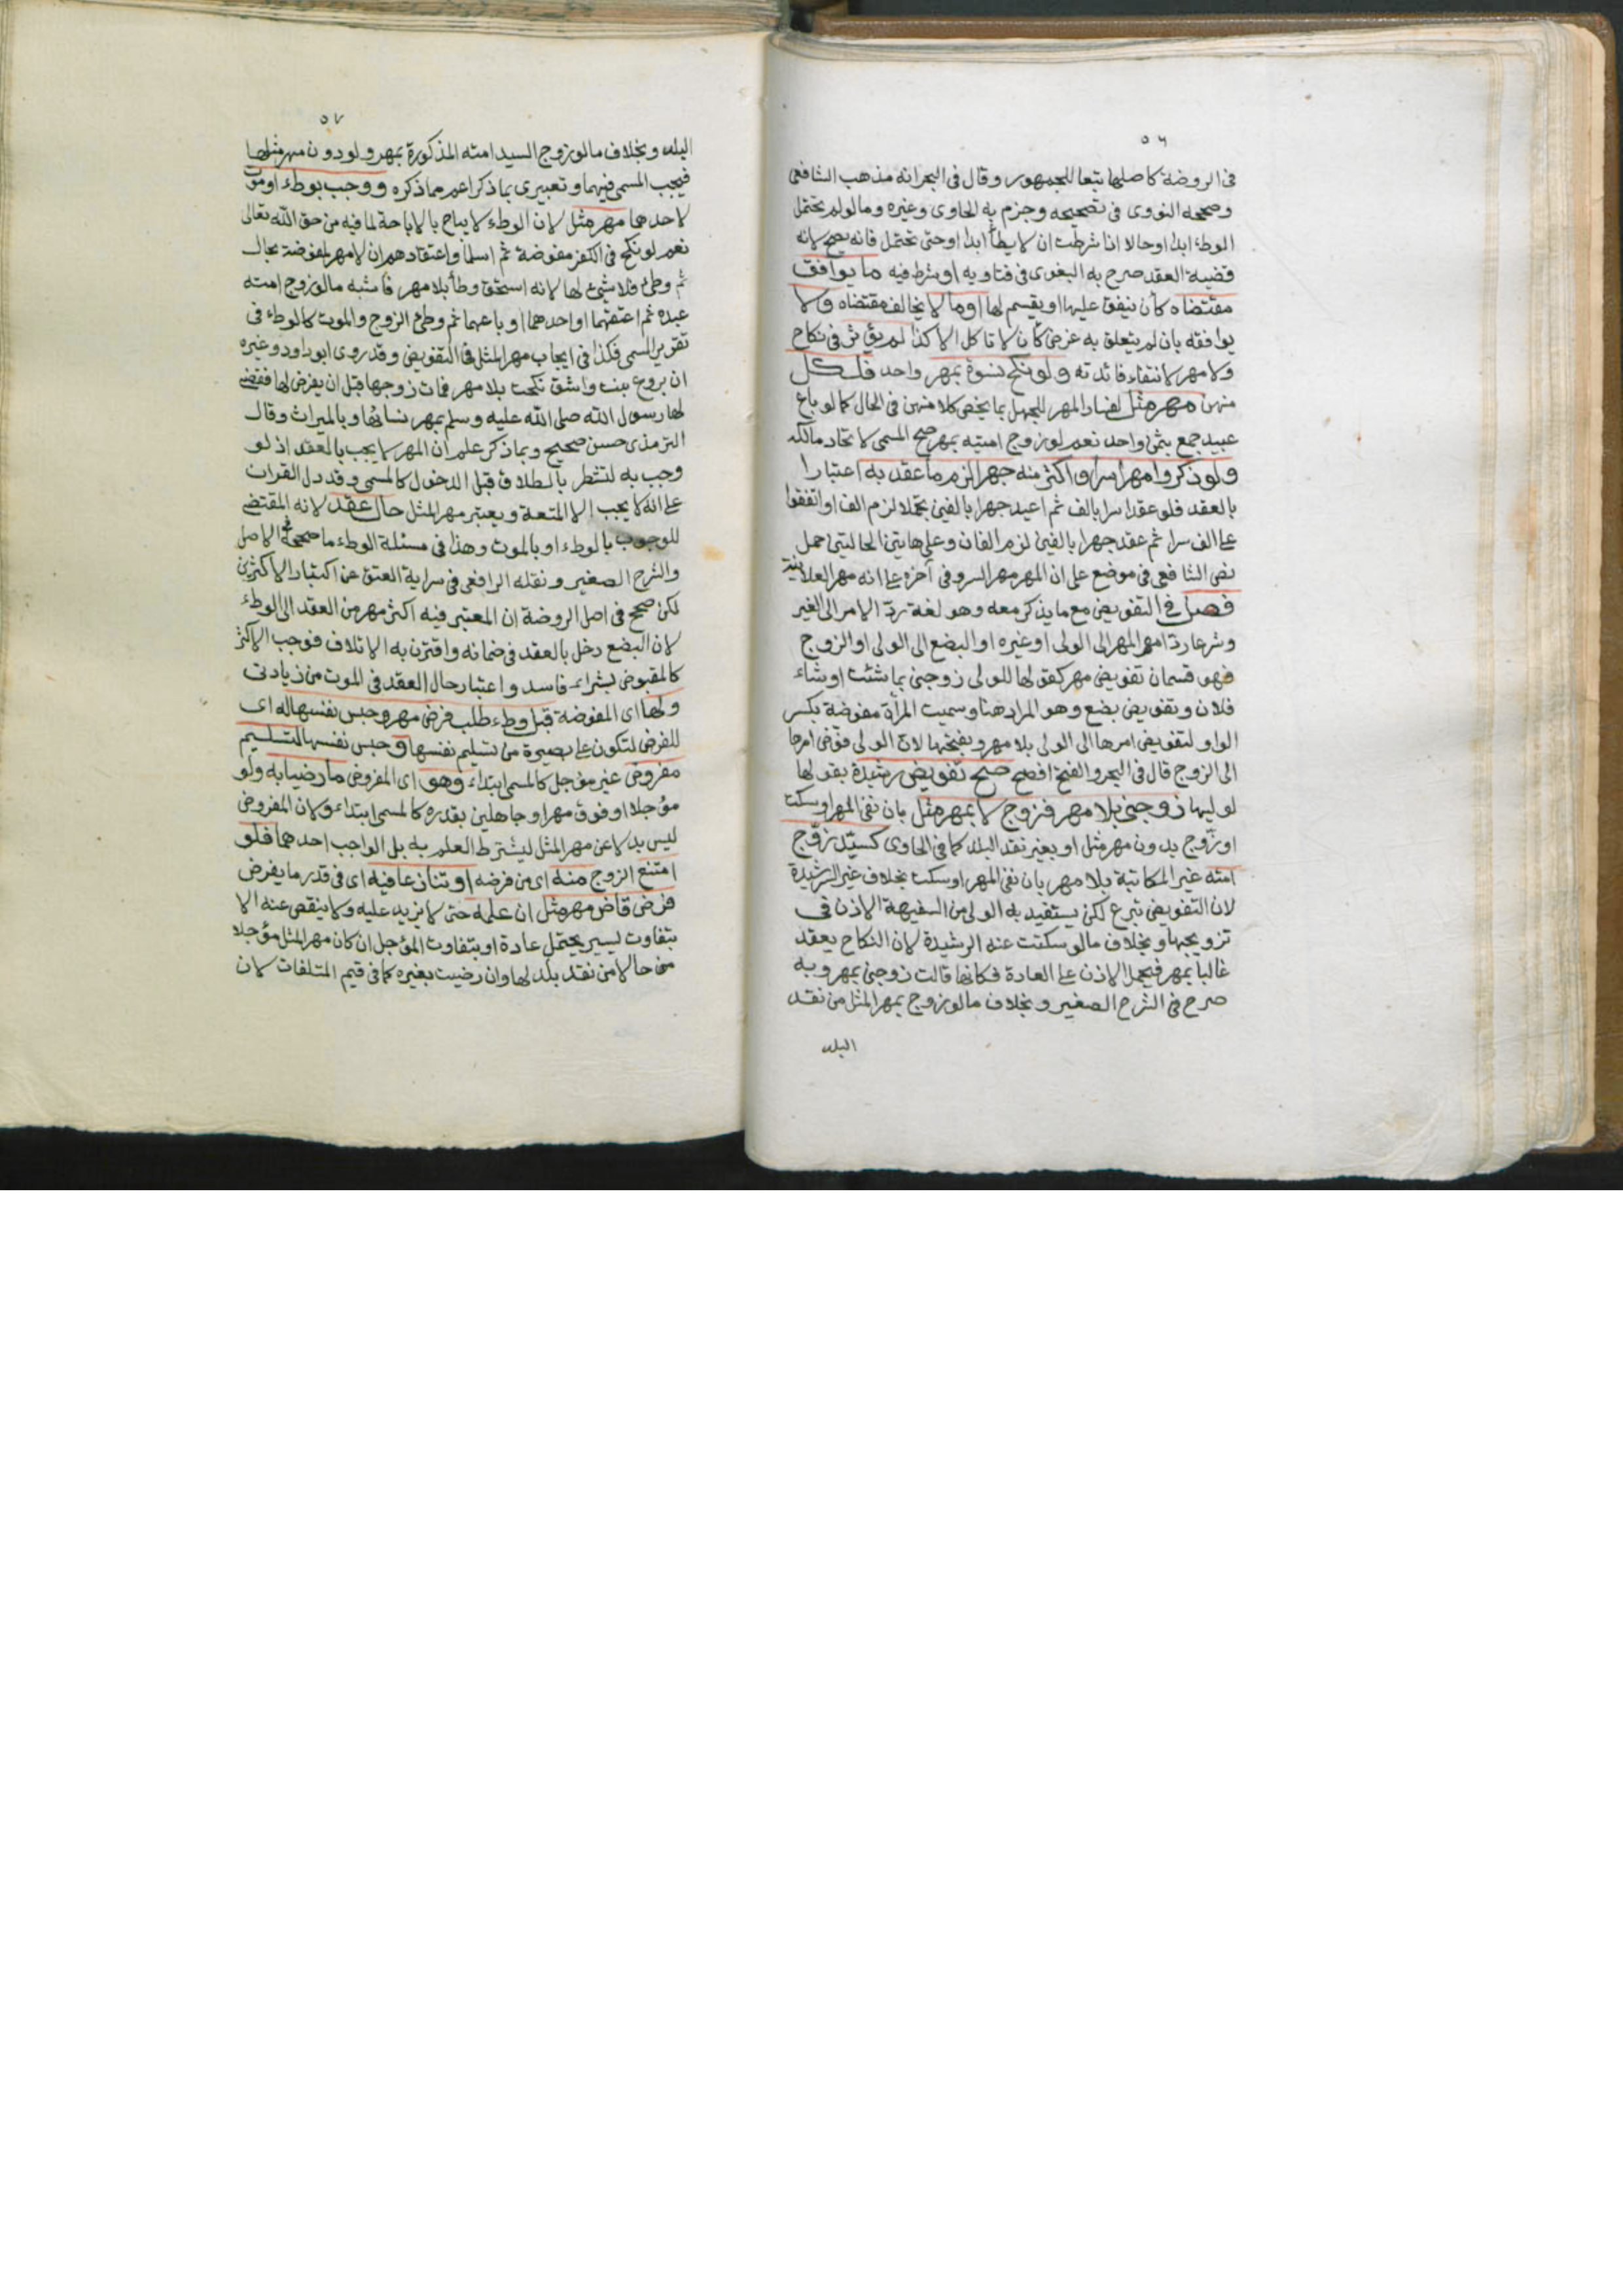 ٥٦
فى الروضة كاصلها تبعا للجمهور وقال فى البحر انه مذهب الشافعى
وصححه النووى فى تصحيحه وجزم به الحاوى وغيره ومالو لم تحتمل
الوطء ابدا او حالا اذا شرطت ان لا يطأ ابدا او حتى تحتمل فانه يصح لانه
قضية العقد صرح به البغوى فى فتاويه او شرط فيه ما يوافق
مقتضاه كأن ينفق عليها او يقسم لها او ما لا يخالف مقتضاه ولا
يوافقه بان لم يتعلق به غرض كأن لا تاكل الا كذا لم يؤثر فى نكاح
ولا مهر لانتفاء فائدته ولو نكح نسوة بمهر واحد فلكل
منهن مهر مثل لفساد المهر للجهل بما يخص كلا منهن فى الحال كما لو باع
عبيد جمع بثمن واحد نعم لو زوج امتيه بمهر صح المسمى لاتحاد مالكه
ولو ذكروا مهرا سرا واكثر منه جهرا لزم ما عقد به اعتبارا
بالعقد فلو عقد سرا بالف ثم اعيد جهرا بالفين تجملا لزم الف او اتفقوا
على الف سرا ثم عقد جهرا بالفين لزم الفان وعلى هاتين الحالتين حمل
نص الشافعى فى موضع على ان المهر مهر السر وفى آخر على انه مهر العلانية
فصل فى التفويض مع ما يذكر معه وهو لغة ردّ الامر الى الغير
وشرعا رد امر المهر الى الولى او غيره او البضع الى الولى او الزوج
فهو قسمان تفويض مهر كقولها للولى زوجنى بما شئت او شاء
فلان وتفويض بضع وهو المراد هنا وسميت المرأة مفوضة بكسر
الواو لتفويض امرها الى الولى بلا مهر وبفتحها لان الولى فوّض امرها
الى الزوج قال فى البحر والفتح افصح صح تفويض رشيدة بقولها
لوليها زوجنى بلا مهر فزوج لا بمهر مثل بان نفى المهر او سكت
او زوج بدون مهر مثل او بغير نقد البلد كما فى الحاوى كسيّد زوّج
امته غير المكاتبة بلا مهر بان نفى المهر او سكت بخلاف غير الرشيدة
لان التفويض تبرع لكن يستفيد به الولى من السفيهة الاذن فى
تزويجها وبخلاف مالو سكتت عنه الرشيدة لان النكاح يعقد
غالبا بمهر فيحمل الاذن على العادة فكانها قالت زوجنى بمهر وبه
صرح فى الشرح الصغير وبخلاف مالو زوج بمهر المثل من نقد
البلد
٥٧
البلد وبخلاف مالو زوج السيد امته المذكورة بمهر ولو دون مهر مثلها
فيجب المسمى فيهما وتعبيرى بما ذكر اعم مما ذكره ووجب بوطء او موت
لاحدهما مهر مثل لان الوطء لا يباح بالاباحة لما فيه من حق الله تعالى
نعم لو نكح فى الكفر مفوضة ثم اسلما واعتقادهم ان لا مهر لمفوضة بحال
ثم وطئ فلا شئ لها لانه استحق وطأ بلا مهر فاشبه مالو زوج امته
عبده ثم اعتقهما او احدهما او باعهما ثم وطئ الزوج والموت كالوطء فى
تقرير المسمى فكذا فى ايجاب مهر المثل فى التفويض وقد روى ابو داود وغيره
ان بروع بنت واشق نكحت بلا مهر فمات زوجها قبل ان يفرض لها فقضى
لها رسول الله صلى الله عليه وسلم بمهر نسائها وبالميراث وقال
الترمذى حسن صحيح وبما ذكر علم ان المهر لا يجب بالعقد اذ لو
وجب به لتشطر بالطلاق قبل الدخول كالمسمى وقد دل القران
على انه لا يجب الا المتعة ويعتبر مهر المثل حال عقد لانه المقتضى
للوجوب بالوطء او بالموت وهذا فى مسئلة الوطء ما صححه فى الاصل
والشرح الصغير ونقله الرافعى فى سراية العتق عن اعتبار الاكثرين
لكن صحح فى اصل الروضة ان المعتبر فيه اكثر مهر من العقد الى الوطء
لان البضع دخل بالعقد فى ضمانه واقترن به الاتلاف فوجب الاكثر
كالمقبوض بشراء فاسد واعتبار حال العقد فى الموت من زيادتى
ولها اى المفوضة قبل وطء طلب فرض مهر وحبس نفسها له اى
للفرض لتكون على بصيرة من تسليم نفسها وحبس نفسها لتسليم
مفروض غير مؤجل كالمسمى ابتداء وهو اى المفروض ما رضيا به ولو
مؤجلا او فوق مهر او جاهلين بقدره كالمسمى ابتداء ولان المفروض
ليس بدلا عن مهر المثل ليشترط العلم به بل الواجب احدهما فلو
امتنع الزوج منه اى من فرضه او تنازعا فيه اى فى قدر ما يفرض
فرض قاض مهر مثل ان علمه حتى لا يزيد عليه ولا ينقص عنه الا
بتفاوت يسير يحتمل عادة او بتفاوت المؤجل ان كان مهر المثل مؤجلا
من حالا من نقد بلد لها وان رضيت بغيره كما فى قيم المتلفات لان